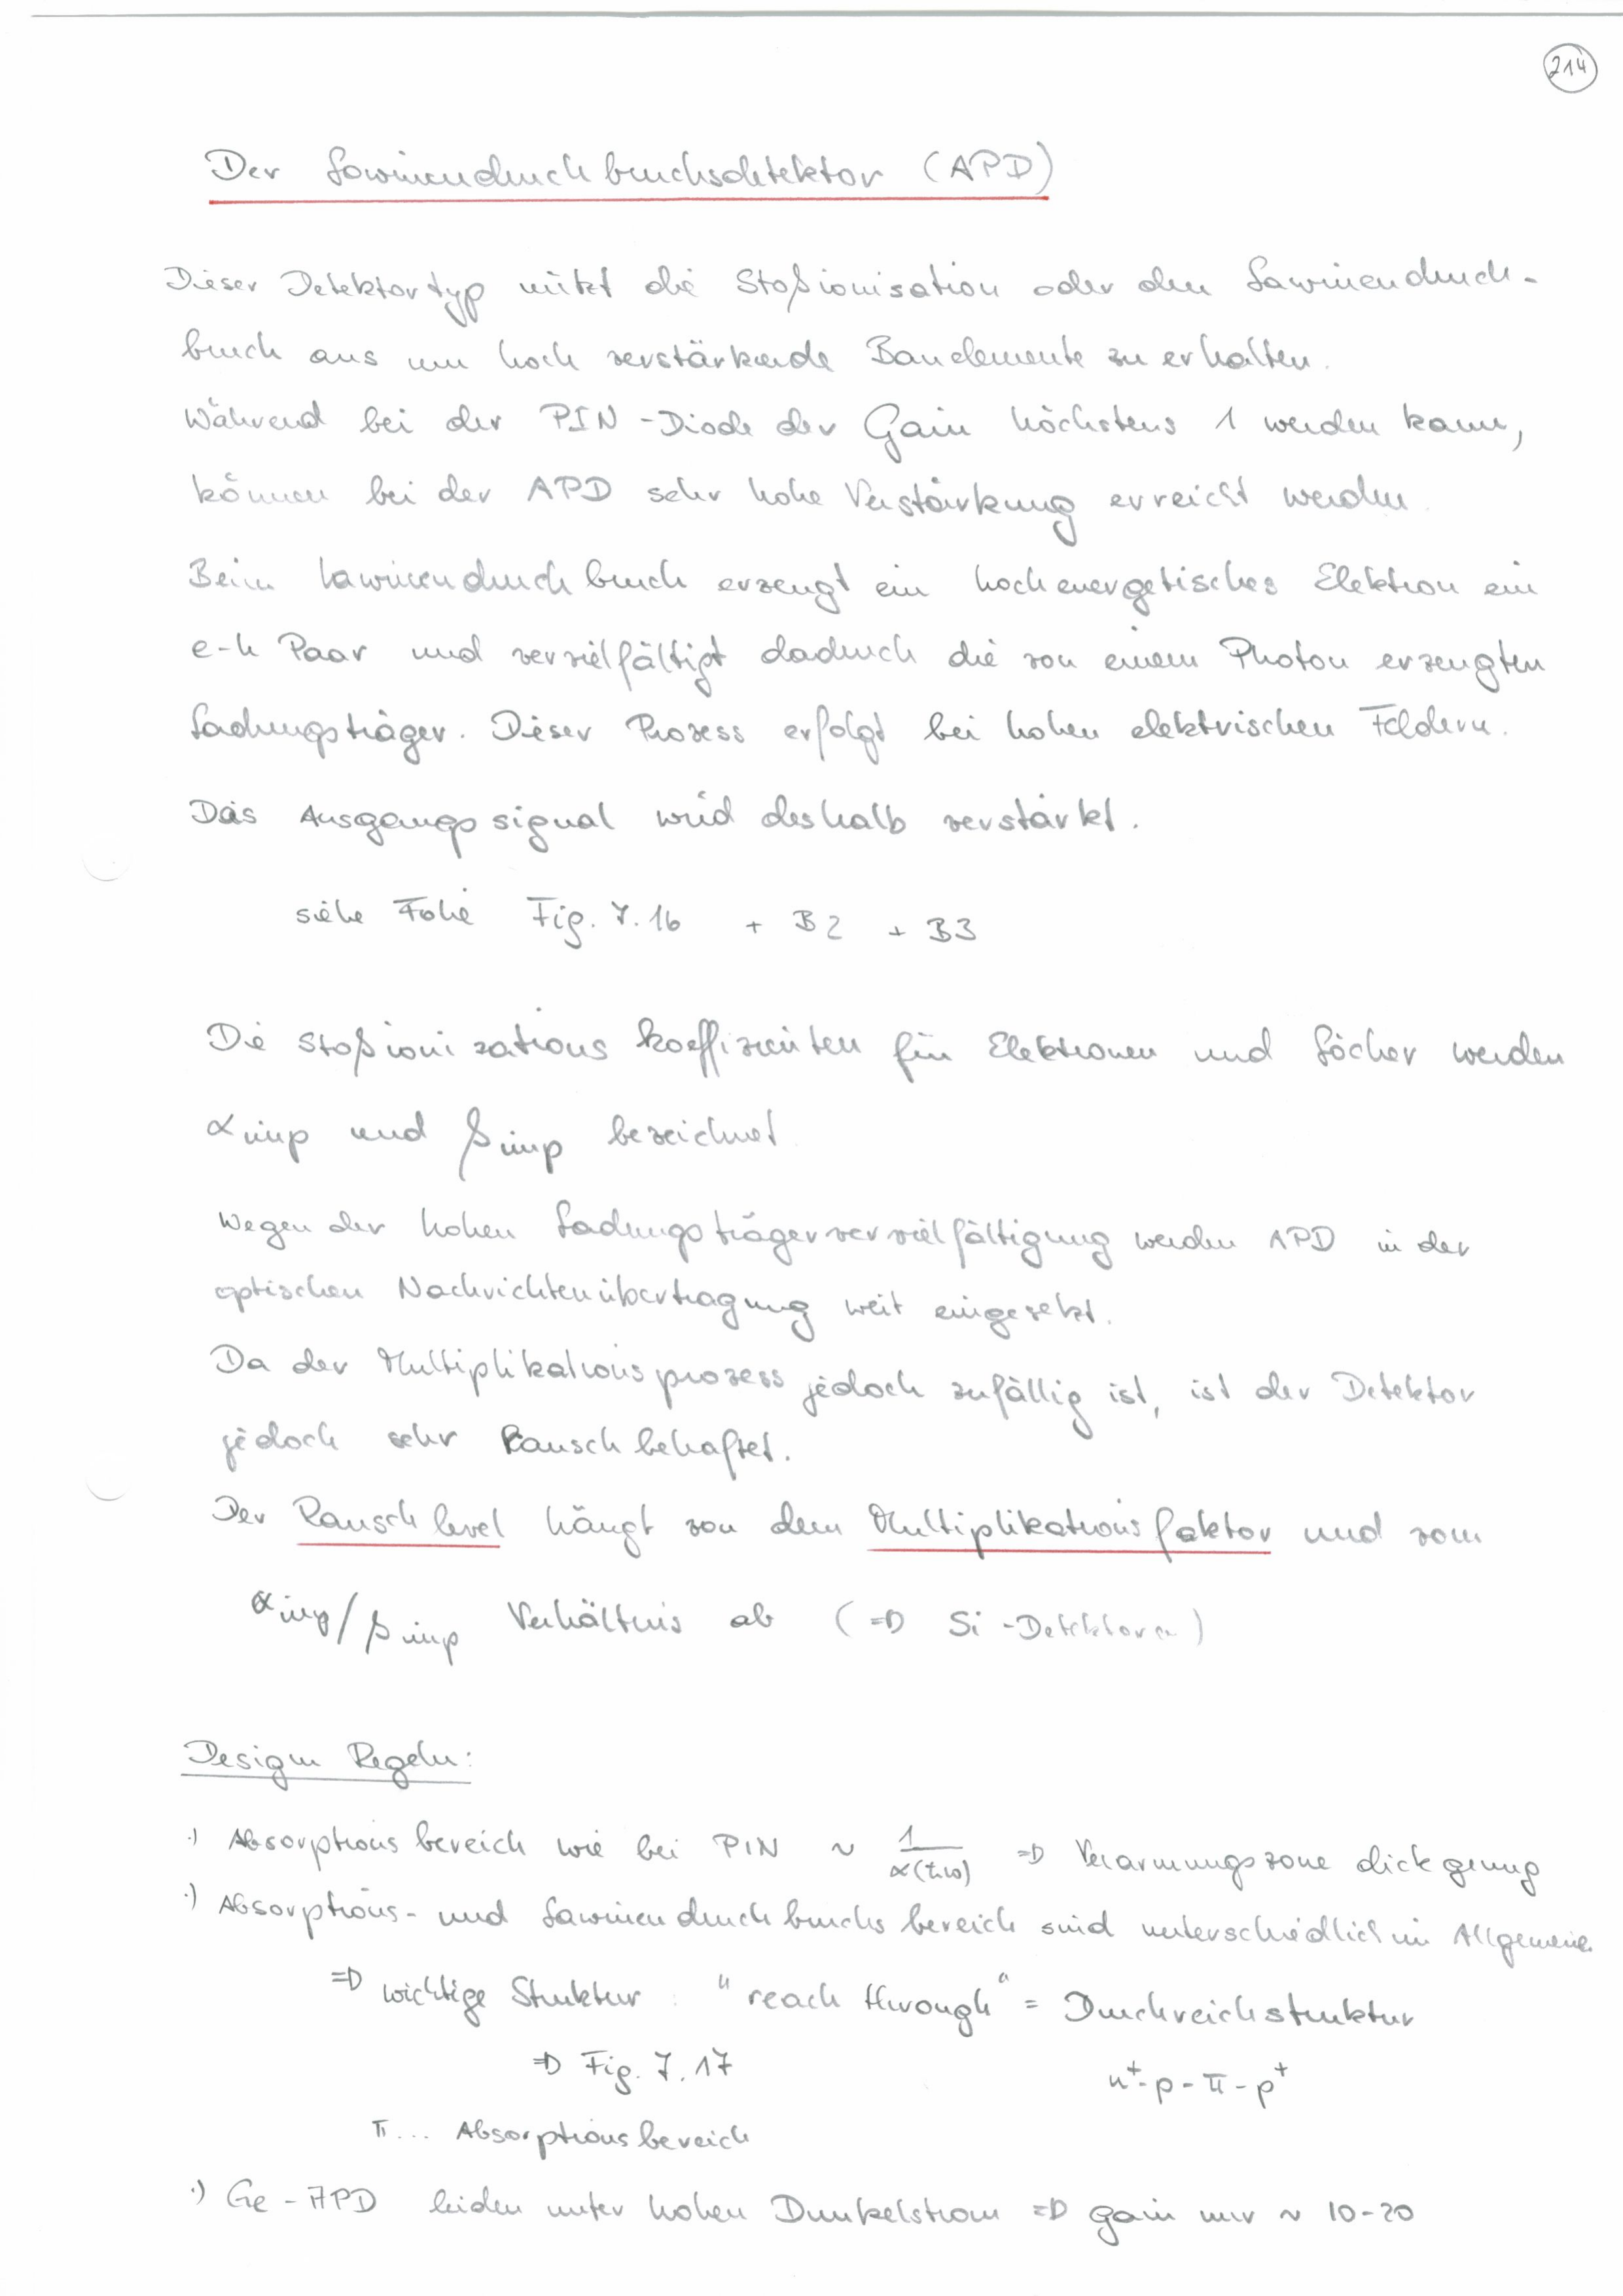 214
Der Lawinendurchbruchsdetektor (APD)
Dieser Detektortyp nützt die Stoßionisation oder den Lawinendurch-
bruch aus um hoch verstärkende Bauelemente zu erhalten.
Während bei der PIN-Diode der Gain höchstens 1 werden kann,
können bei der APD sehr hohe Verstärkung erreicht werden.
Beim Lawinendurchbruch erzeugt ein hochenergetisches Elektron ein
e-h Paar und vervielfältigt dadurch die von einem Photon erzeugten
Ladungsträger. Dieser Prozess erfolgt bei hohen elektrischen Feldern.
Das Ausgangssignal wird deshalb verstärkt.
siehe Folie Fig. 7.16 + B2 + B3
Die Stoßionizationskoeffizienten für Elektronen und Löcher werden
α imp und β imp bezeichnet.
Wegen der hohen Ladungsträgervervielfältigung werden APD in der
optischen Nachrichtenübertragung weit eingesetzt.
Da der Multiplikationsprozess jedoch zufällig ist, ist der Detektor
jedoch sehr Rauschbehaftet.
Der Rauschlevel hängt von dem Multiplikationsfaktor und vom
α imp / β imp Verhältnis ab (⇒ Si-Detektoren)
Design Regeln:
·) Absorptionsbereich wie bei PIN ~ 1/α(ħω) ⇒ Verarmungszone dick genug
·) Absorptions- und Lawinendurchbruchsbereich sind unterschiedlich im Allgemeinen
⇒ wichtige Struktur: "reach through" = Durchreichstruktur
⇒ Fig. 7.17 n⁺-p-π-p⁺
π... Absorptionsbereich
·) Ge-APD leiden unter hohen Dunkelstrom ⇒ gain nur ~ 10-20